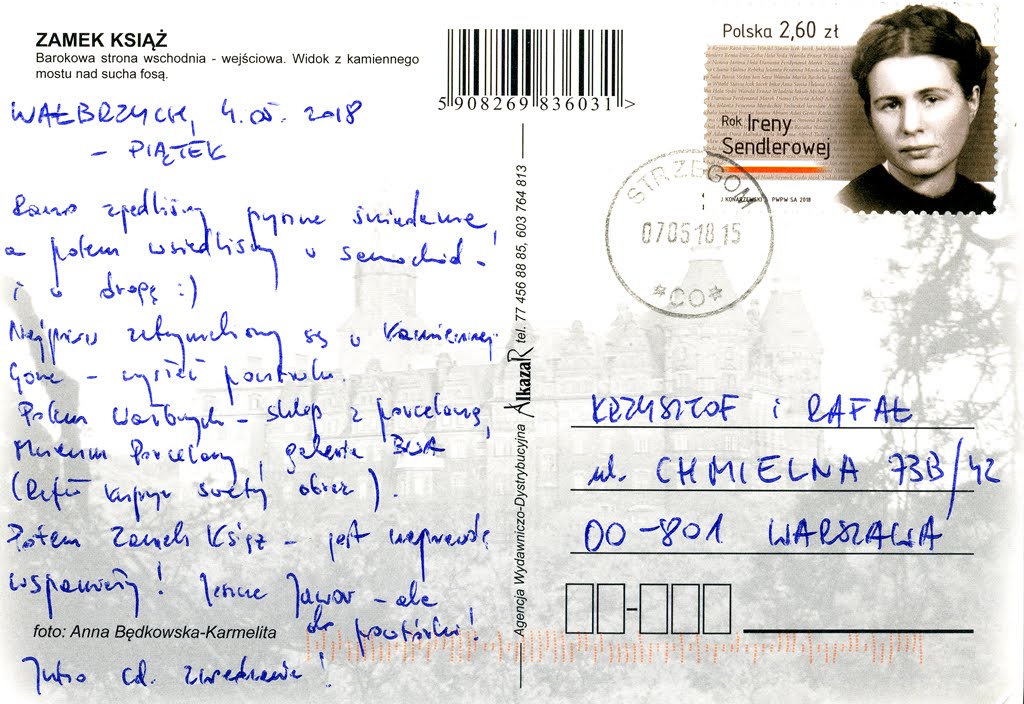 ZAMEK KSIĄŻ
Barokowa strona wschodnia - wejściowa. Widok z kamiennego
mostu nad sucha fosą.
WAŁBRZYCH, 4.05.2018
- PIĄTEK
Rano zjedliśmy pyszne śniadanie,
a potem wsiedliśmy w samochód -
i w drogę :)
Najpierw zatrzymaliśmy się w Kamiennej
Górze -
Potem Wałbrzych - sklep z porcelaną,
Muzeum Porcelany, galeria BWA
(Rafał kupuje świetny obraz).
Potem Zamek Książ - jest naprawdę
wspaniały! Jeszcze Jawor - ale
do powtórki!
foto: Anna Będkowska-Karmelita
Jutro cd. zwiedzania!
5 908269 836031 >
Agencja Wydawniczo-Dystrybucyjna AlkazaR tel. 77 456 88 85, 603 764 813
Polska 2,60 zł
Rok Ireny
Sendlerowej
PWPW SA 2018
STRZEGOM
070518 15
*CO*
KRZYSZTOF i RAFAŁ
ul. CHMIELNA 73B/42
00-801 WARSZAWA